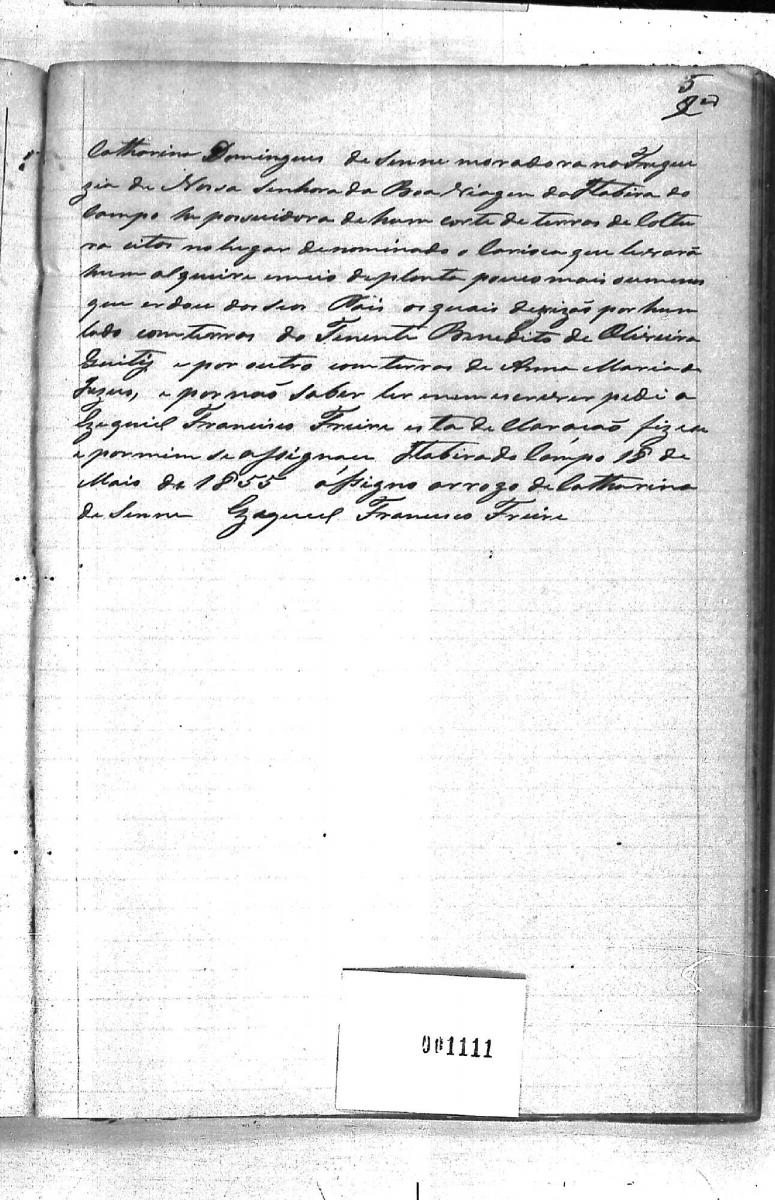 5
Catharina Domingues de Senne moradora na Fregue
zia de Nossa Senhora da Boa Viagem da Itabira do
Campo he possuidora de hum corte de terras de Coltu
ra citos no lugar denominado o Carioca que levará
hum alqueire e meio de planta pouco mais ou menos
que erdou dos seos Pais os quais devizão por hum
lado com terras do Tenente Benedito de Oliveira
e por outro com terras de Anna Maria de
Jezus, e por naõ saber ler e nem escrever pedi a
Ezequiel Francisco Freire esta de Claracaõ fizece
e por mim se assignace Itabira do Campo 18 de
Maio de 1855 assigno arrogo de Catharina
de Senne Ezequiel Francisco Freire
001111